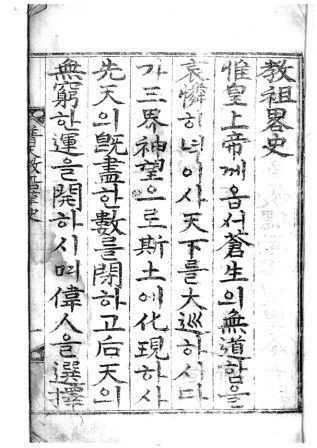 敎祖畧史
惟皇上帝께옵서蒼生의無道함을
哀憐히녁이사天下를大巡하시다
가三界神望으로斯土에化現하사
先天의旣盡한數를閉하고后天의
無窮한運을開하시며偉人을選擇